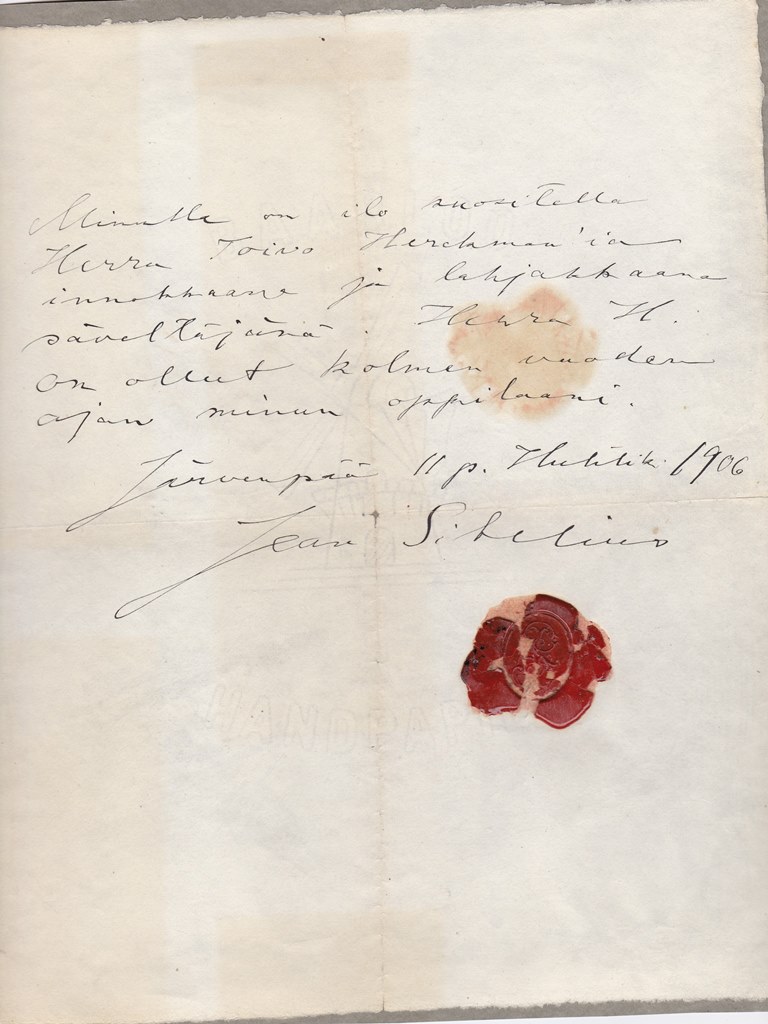 Minulla on ilo suositella
Herra Toivo Herckman'ia
innokkaana ja lahjakkaana
säveltäjänä. Herra H.
on ollut kolmen vuoden
ajan minun oppilaani.
Järvenpää 11 p. Huhtik. 1906
Jean Sibelius